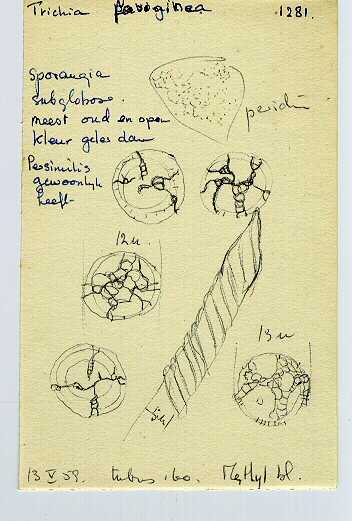 Trichia faviginea 1281.
Sporangia
subglobose.
meest oud en open
kleur geler dan
Persimilis
gewoonlijk
heeft
peridiu
12 u.
13 u
13 V 59. tubus 160. Methyl bl.